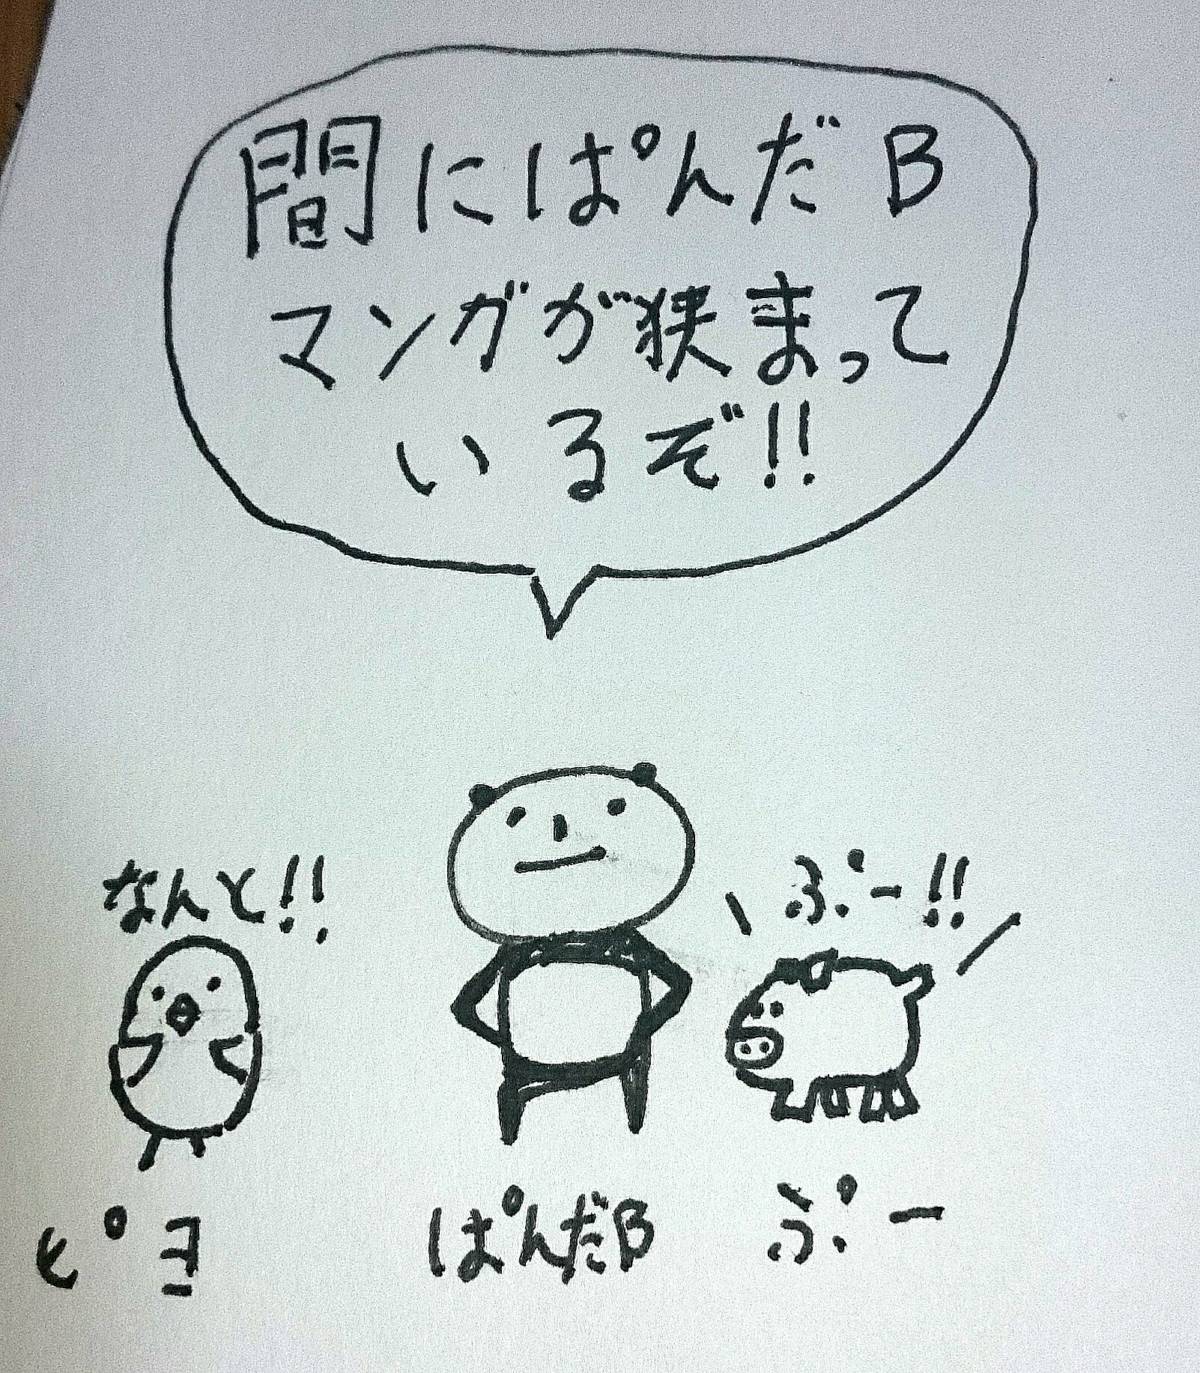 間にぱんだB
マンガが狭まって
いるぞ!!
なんと!!
ぷー!!
ピヨ
ぱんだB
ぷー